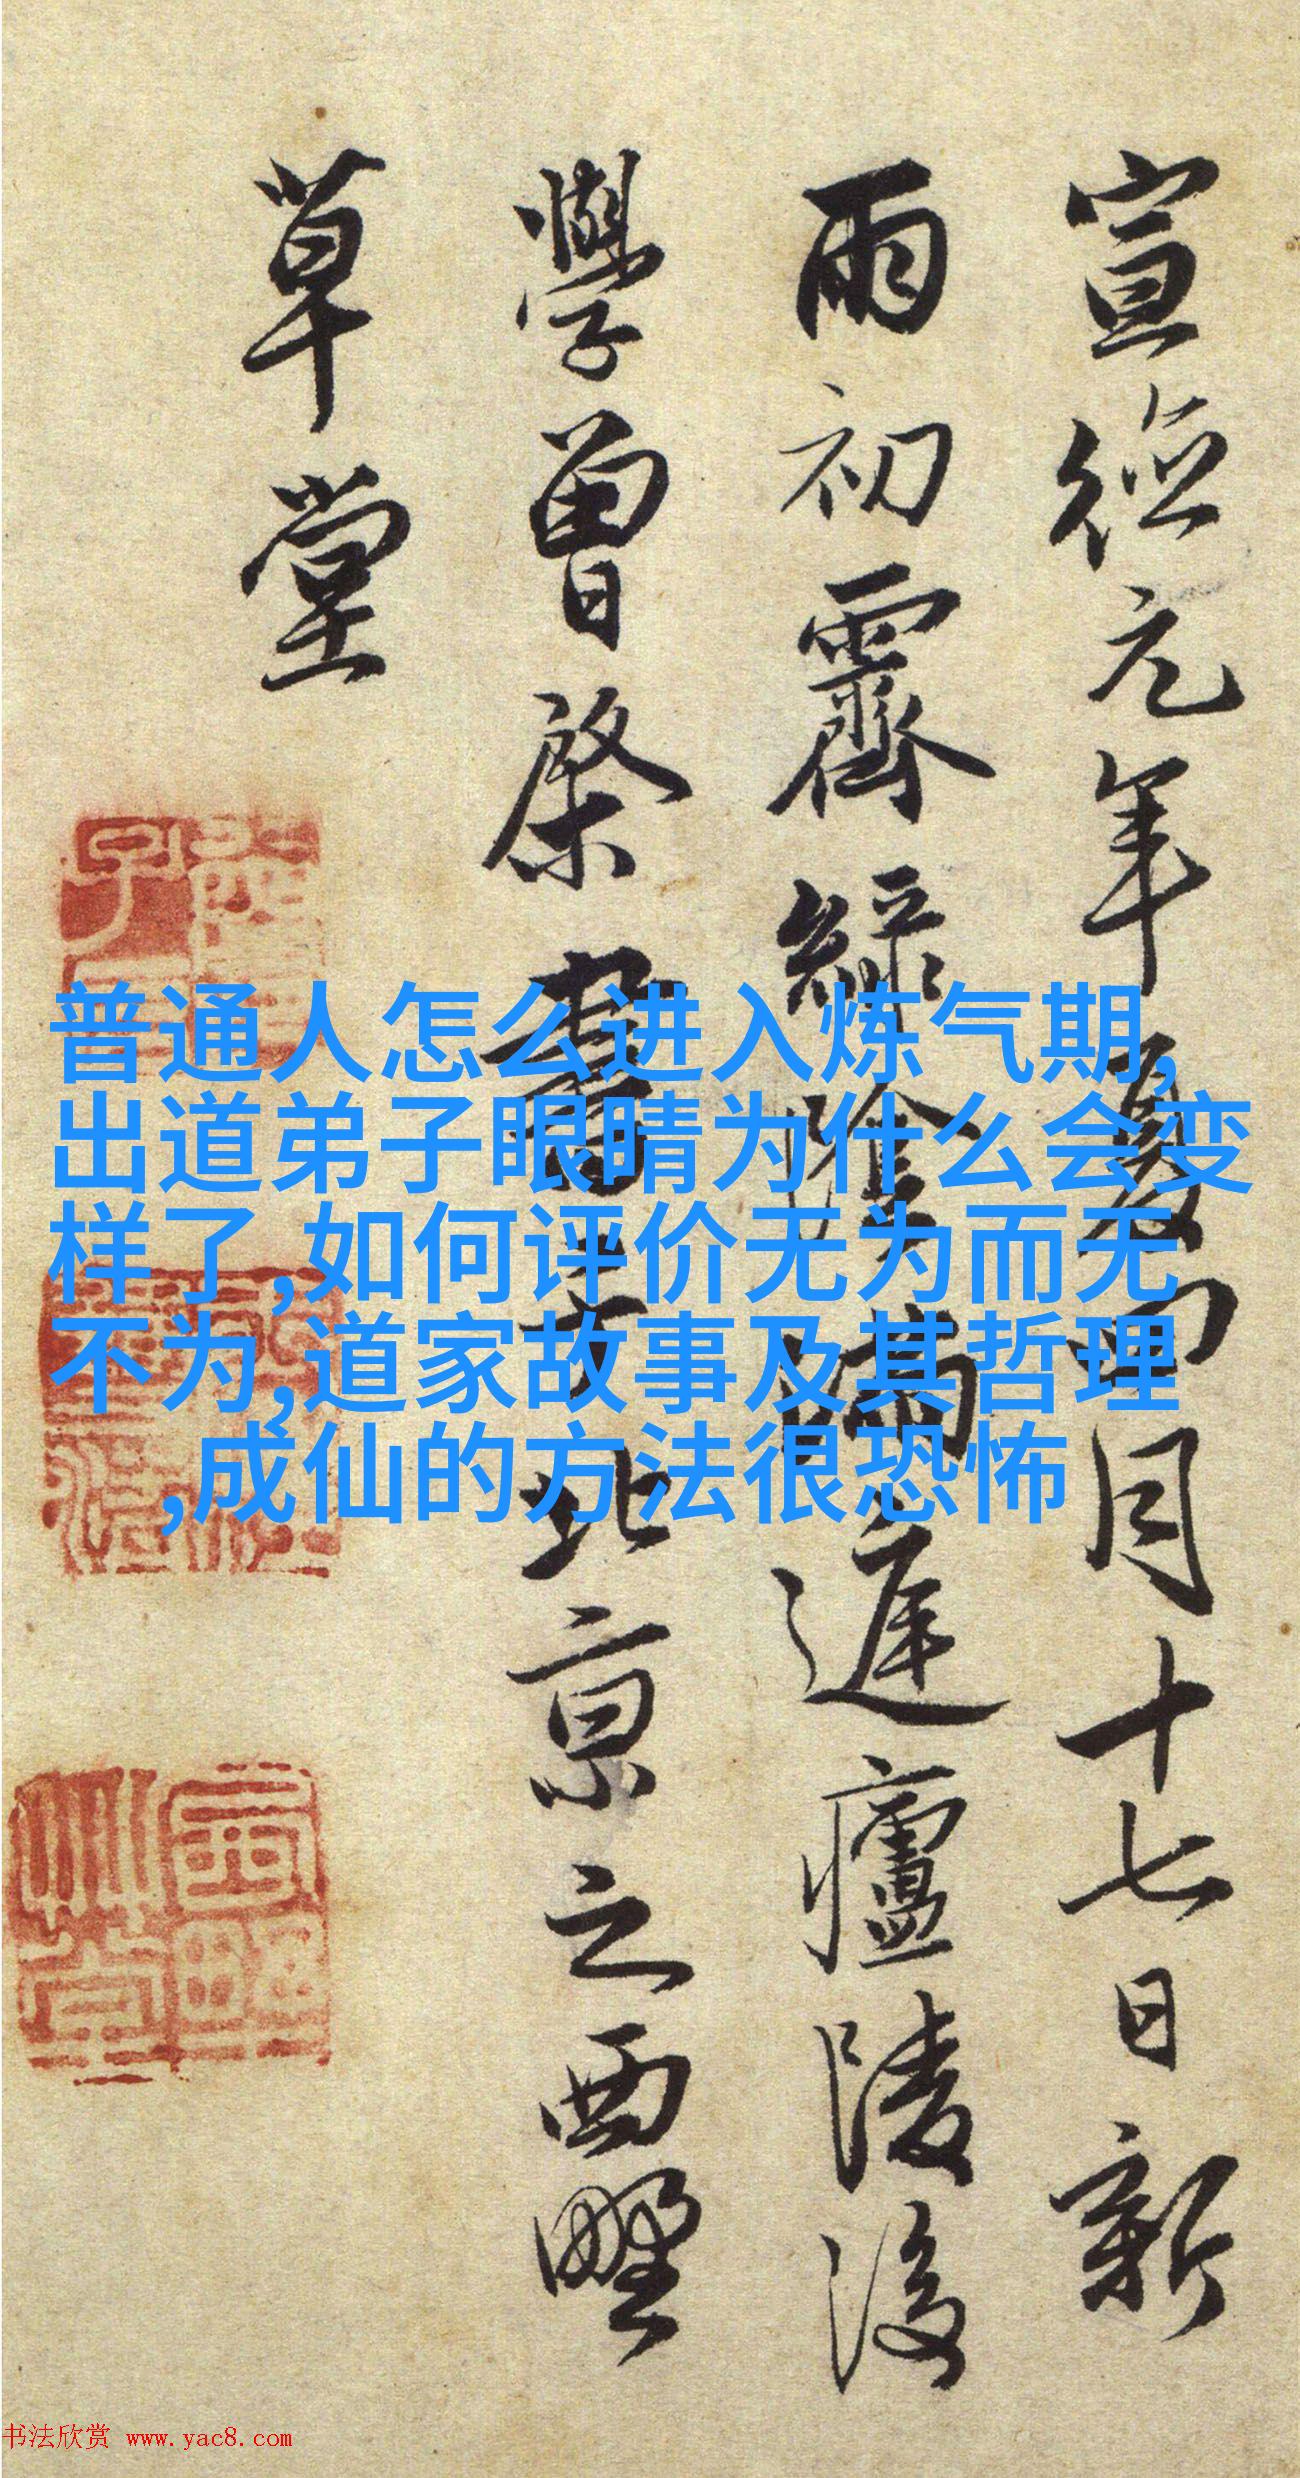 宣德元年夏四月十七日新
雨初霽綠陰滿庭廬陵後
學曾棨書于北京之西墅
草堂
普通人怎么进入炼气期,
出道弟子眼睛为什么会变
样了,如何评价无为而无
不为,道家故事及其哲理
,成仙的方法很恐怖
书法欣赏 www.yac8.com